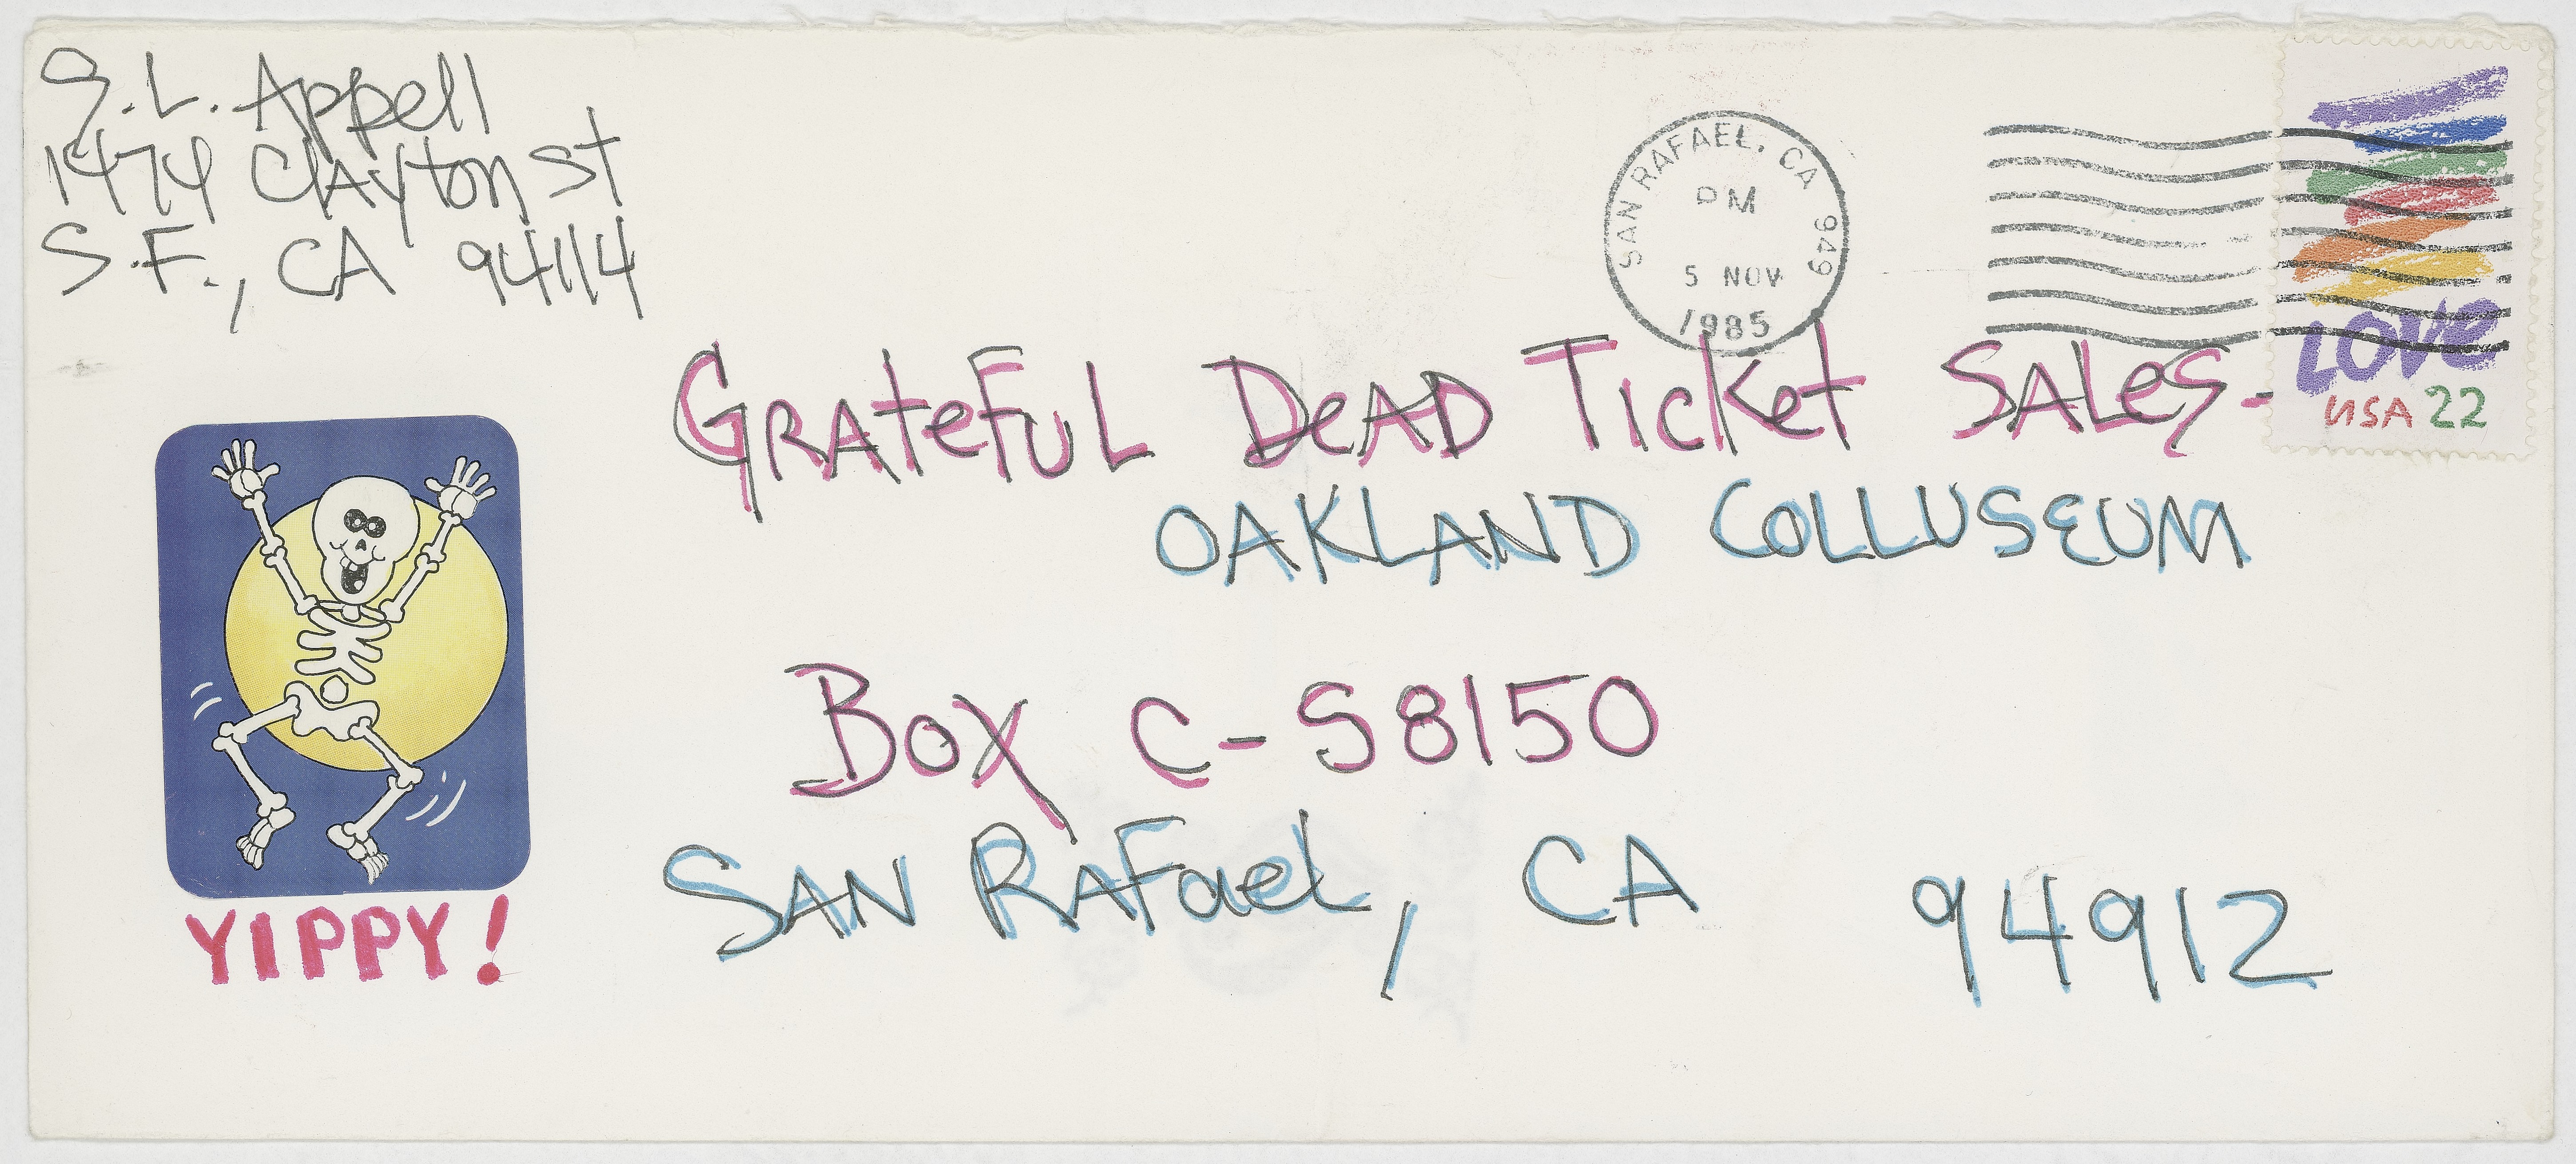 S.L. Appell
1474 Clayton St
S.F., CA 94114
SAN RAFAEL, CA 949
PM
5 NOV
1985
LOVE
USA 22
Grateful Dead Ticket Sales-
OAKLAND COLLUSEUM
Box C-S8150
San Rafael, CA 94912
YIPPY!